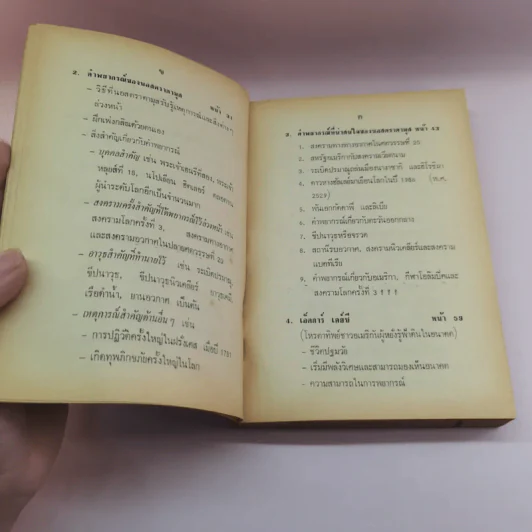 ๒
2. คำพยากรณ์ของนอสตราดามุส หน้า 31
– วิธีที่นอสตราดามุสรับรู้เหตุการณ์และสิ่งต่าง ๆ
ล่วงหน้า
– ฝึกเพ่งกสิณด้วยตนเอง
– สิ่งสำคัญเกี่ยวกับคำพยากรณ์
– บุคคลสำคัญ เช่น พระเจ้าเฮนรี่ที่สอง, พระเจ้า
หลุยส์ที่ 16, นโปเลียน ฮิตเลอร์ ตลอดจน
ผู้นำระดับโลกอีกเป็นจำนวนมาก
– สงครามครั้งสำคัญที่ได้พยากรณ์ไว้ล่วงหน้า เช่น
สงครามโลกครั้งที่ 3, สงครามอวกาศ
และสงครามอวกาศในปลายศตวรรษที่ 20
– อาวุธสำคัญที่ทำนายไว้ เช่น ระเบิดปรมาณู,
ขีปนาวุธ, ขีปนาวุธนิวเคลียร์ อาวุธเคมี,
เรือดำน้ำ, ยานอวกาศ เป็นต้น
– เหตุการณ์สำคัญด้านอื่น ๆ เช่น
– การปฏิวัติครั้งใหญ่ในฝรั่งเศส เมื่อปี 1791
– เกิดทุพภิกขภัยครั้งใหญ่ในโลก
๓
3. คำพยากรณ์ที่น่าสนใจของนอสตราดามุส หน้า 43
1. สงครามดวงดาวอวกาศในศตวรรษที่ 20
2. สหรัฐอเมริกากับสงครามเวียดนาม
3. ระเบิดปรมาณูถล่มเมืองนางาซากิ และฮิโรชิมา
4. ดาวหางฮัลเลย์มาเยือนโลกในปี 1986 (พ.ศ.
2529)
5. พันเอกกัดดาฟี และลิเบีย
6. คำพยากรณ์เกี่ยวกับตะวันออกกลาง
7. ขีปนาวุธหรือจรวด
8. สถานีรบอวกาศ, สงครามนิวเคลียร์และสงคราม
แบคทีเรีย
9. คำพยากรณ์เกี่ยวกับอเมริกา, กีฬาโอลิมปิคและ
สงครามโลกครั้งที่ 3 ฯลฯ
4. เอ็ดการ์ เคย์ซี หน้า 59
(โหราทิพย์ชาวอเมริกันผู้หยั่งรู้ฟ้าดินในอนาคต)
– ชีวิตปฐมวัย
– เริ่มมีพลังวิเศษและสามารถมองเห็นอนาคต
– ความสามารถในการพยากรณ์